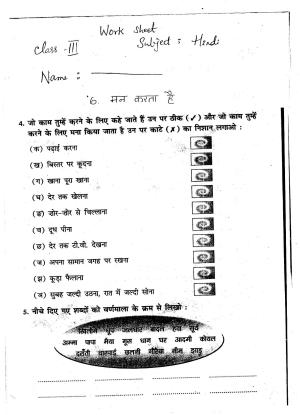 Work Sheet
Class - III Subject : Hindi
Name :
6. मन करता है
4. जो काम तुम्हें करने के लिए कहे जाते हैं उन पर ठीक (✓) और जो काम तुम्हें
करने के लिए मना किया जाता है उन पर काटे (✗) का निशान लगाओ :
(क) पढ़ाई करना
(ख) बिस्तर पर कूदना
(ग) खाना पूरा खाना
(घ) देर तक खेलना
(ङ) ज़ोर-ज़ोर से चिल्लाना
(च) दूध पीना
(छ) देर तक टी.वी. देखना
(ज) अपना सामान जगह पर रखना
(झ) कूड़ा फैलाना
(ञ) सुबह जल्दी उठना, रात में जल्दी सोना
5. नीचे दिए गए शब्दों को वर्णमाला के क्रम से लिखो :
जलधर बादल हवा सूर्य
अम्मा पापा मैया गुल धाग घर आदमी कोयल
चारपाई छलनी नीम झाड़ू